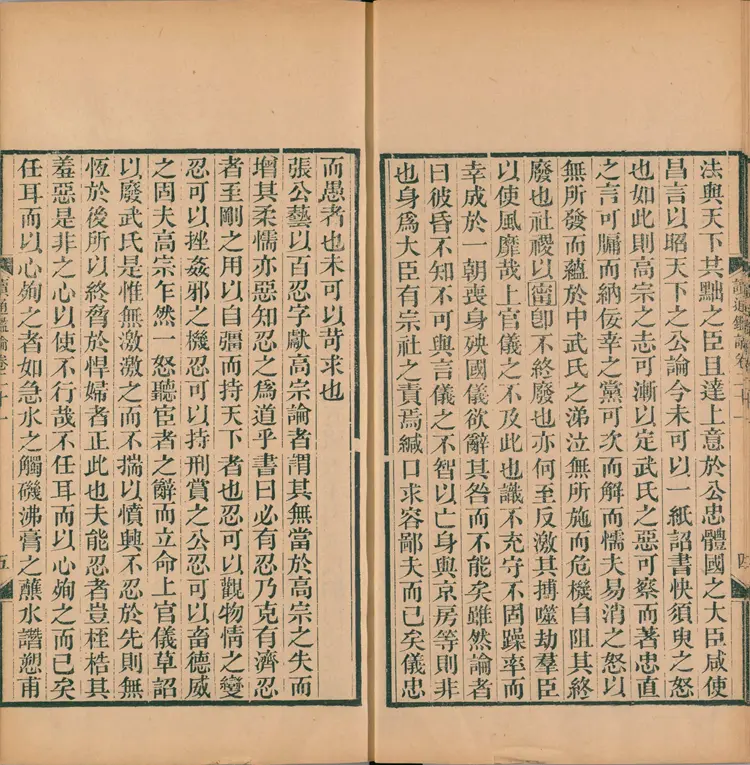 法與天下共黜之臣且達上意於公忠體國之大臣咸使
昌言以昭天下之公論今未可以一紙詔書快須臾之怒
也如此則高宗之志可漸以定武氏之惡可察而著忠直
之言可牖而納佞幸之黨可次而解而懦夫易消之怒以
無所發而蘊於中武氏之涕泣無所施而危機自阻其終
廢也社稷以甯卽不終廢也亦何至反激其搏噬劫羣臣
以使風靡哉上官儀之不及此也識不充守不固躁率而
幸成於一朝喪身殃國儀欲辭其咎而不能矣雖然論者
曰彼昏不知不可與言儀之不智以亡身與京房等則非
也身爲大臣有宗社之責焉緘口求容鄙夫而已矣儀忠
讀通鑑論卷二十一
四
而愚者也未可以苛求也
張公藝以百忍字獻高宗論者謂其無當於高宗之失而
增其柔懦亦惡知忍之爲道乎書曰必有忍乃克有濟忍
者至剛之用以自彊而持天下者也忍可以觀物情之變
忍可以挫姦邪之機忍可以持刑賞之公忍可以畜德威
之固夫高宗乍然一怒聽宦者之辭而立命上官儀草詔
以廢武氏是惟無激激之而不揣以憤興不忍於先則無
恆於後所以終脅於悍婦者正此也夫能忍者豈桎梏其
羞惡是非之心以使不行哉不任耳而以心殉之而已矣
任耳而以心殉之者如急水之觸磯沸膏之蘸水譖愬甫
讀通鑑論卷二十一
五